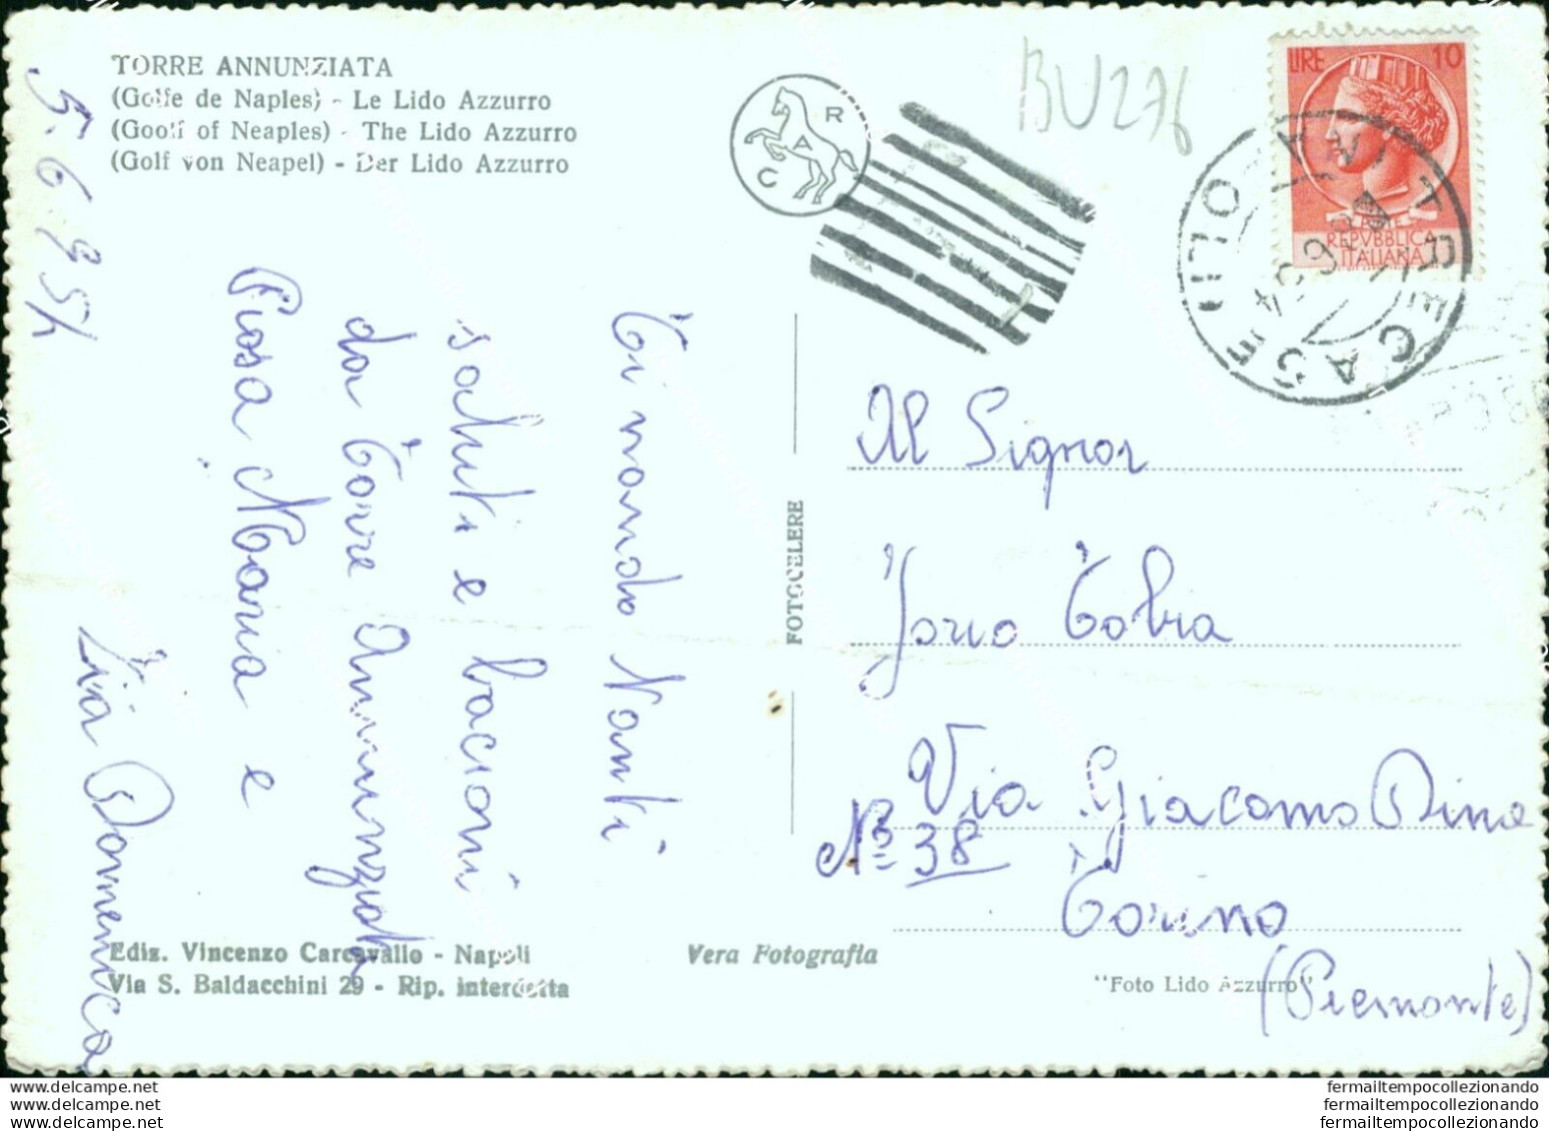 TORRE ANNUNZIATA
(Golfe de Naples) - Le Lido Azzurro
(Goolf of Neaples) - The Lido Azzurro
(Golf von Neapel) - Der Lido Azzurro
5.6.954
Ti mando Tanti
saluti e bacioni
da Torre Annunziata
Rosa Maria e
Zia Domenica
CAR
BU276
LIRE 10
POSTE
REPVBBLICA
ITALIANA
TRECASE
FOTOCELERE
Al Signor
Iorio Tobia
Via Giacomo Dina
N° 38
Torino
(Piemonte)
Ediz. Vincenzo Carcavallo - Napoli
Via S. Baldacchini 29 - Rip. interdetta
Vera Fotografia
"Foto Lido Azzurro"
www.delcampe.net
www.delcampe.net
www.delcampe.net
fermailtempocollezionando
fermailtempocollezionando
fermailtempocollezionando